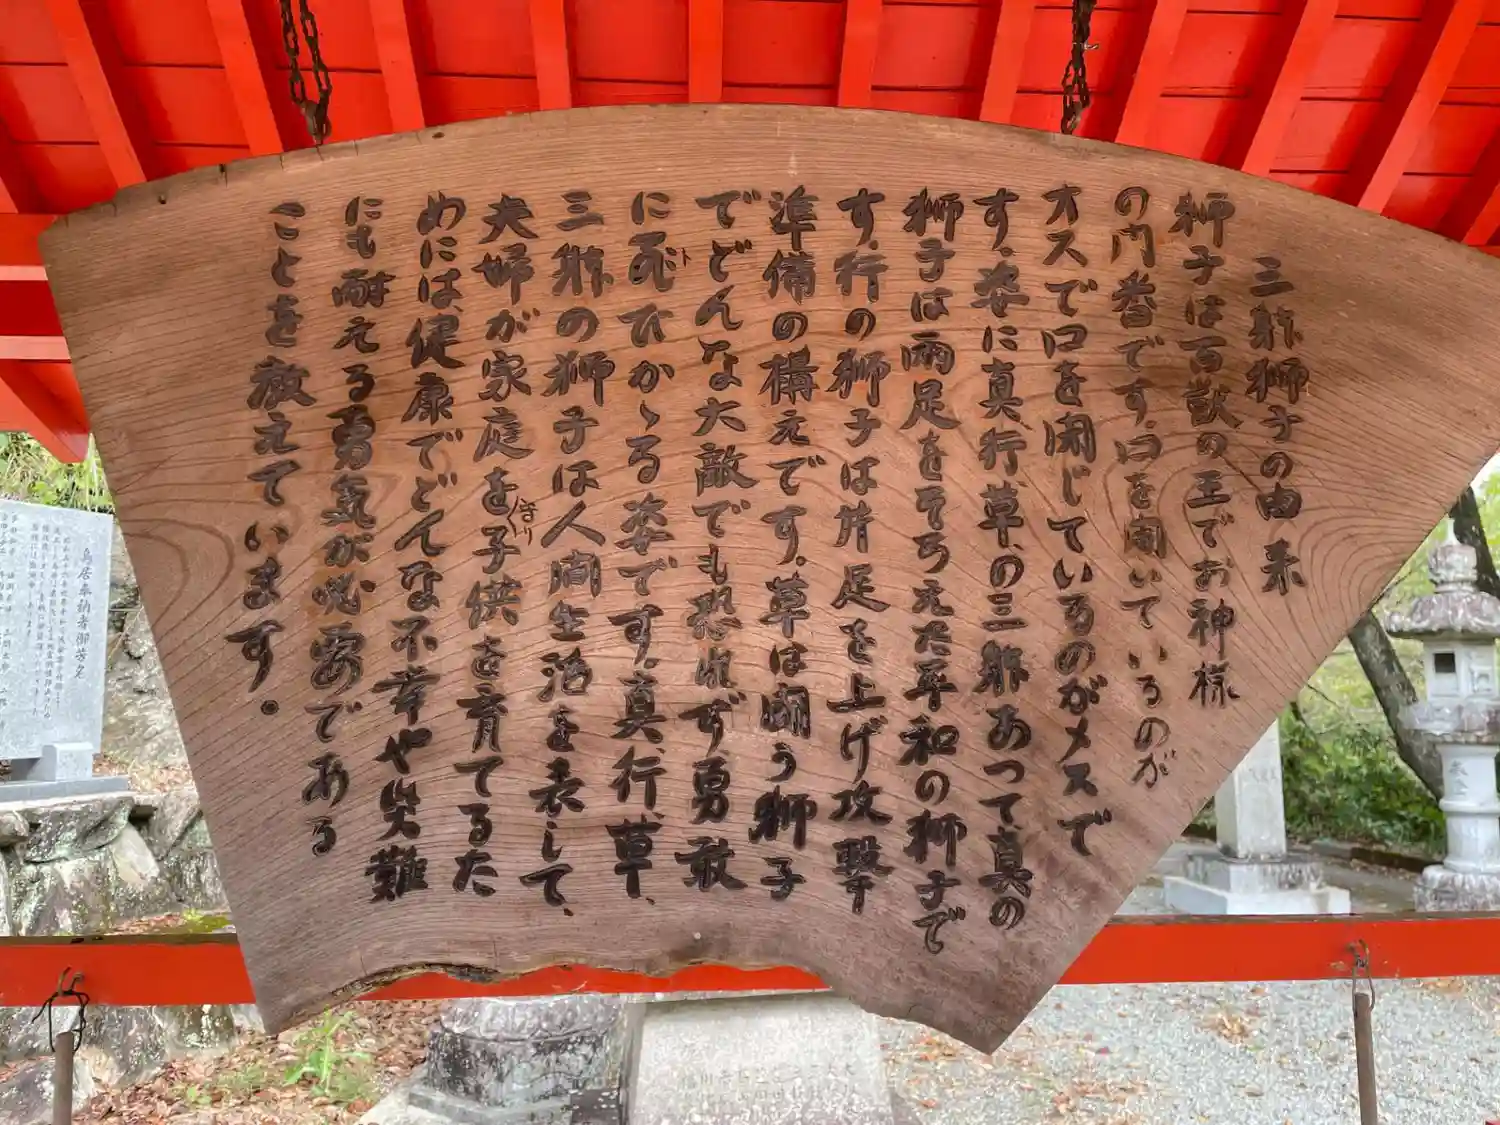 三躰獅子の由来
獅子は百獣の王でお神様
の門番です。口を開いているのが
オスで口を閉じているのがメスで
す。姿に真、行、草、の三躰あつて、真の
獅子は両足をそろえた平和の獅子で
す。行の獅子は片足を上げ攻撃
準備の構えです。草は闘う獅子
でどんな大敵でも恐れず勇敢
に飛びかゝる姿です。真、行、草、
三躰の獅子は人間生活を表して、
夫婦が家庭を守り子供を育てるた
めには健康でどんな不幸や災難
にも耐える勇気が必要である
ことを教えています。
鳥居奉納者御芳名